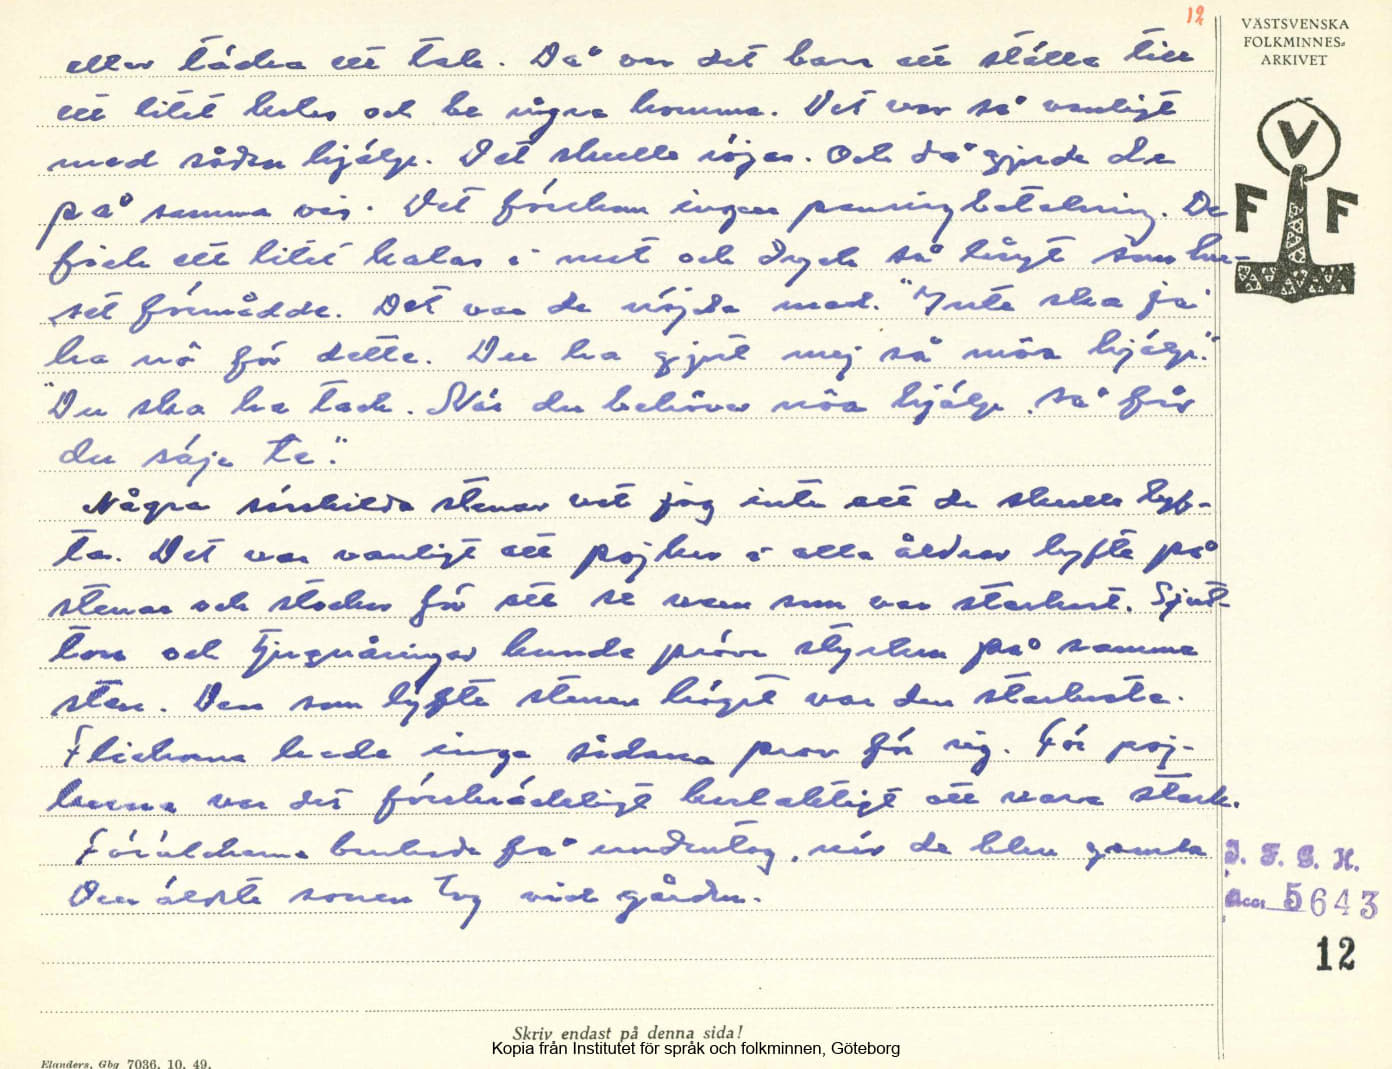 12
VÄSTSVENSKA
FOLKMINNES=
ARKIVET
V
F F
eller täcka ett tak. Då var det bara att ställa till
ett litet kalas och be några komma. Det var så vanligt
med såden hjälp. Det skulle röjas. Och då gjorde de
på samma vis. Det förekom ingen penningbetalning. De
fick ett litet kalas i mat och dryck så långt som hu-
set förmådde. Det var de nöjda med. "Inte ska ja
ha nô för dette. Du ha gjort mej så möa hjälp."
"Du ska ha tack. När du behöver nöa hjälp, så får
du säja te."
Några särskilda stenar vet jag inte att de skulle lyf-
ta. Det var vanligt att pojkar i alla åldrar lyfte på
stenar och stockar för att se vem som var starkast. Sjut-
ton och tjugoåringar kunde pröva styrkan på samma
sten. Den som lyfte stenen högst var den starkaste.
Flickorna hade inga sådana prov för sig. För poj-
karna var det förskräckligt kuslaktigt att vara stark.
Föräldrarna brukade få undantag, när de blev gamla
Den äldste sonen tog vid gården.
I. F. G. H.
Acc. 5643
12
Skriv endast på denna sida!
Kopia från Institutet för språk och folkminnen, Göteborg
Elanders, Gbg 7036. 10. 49.